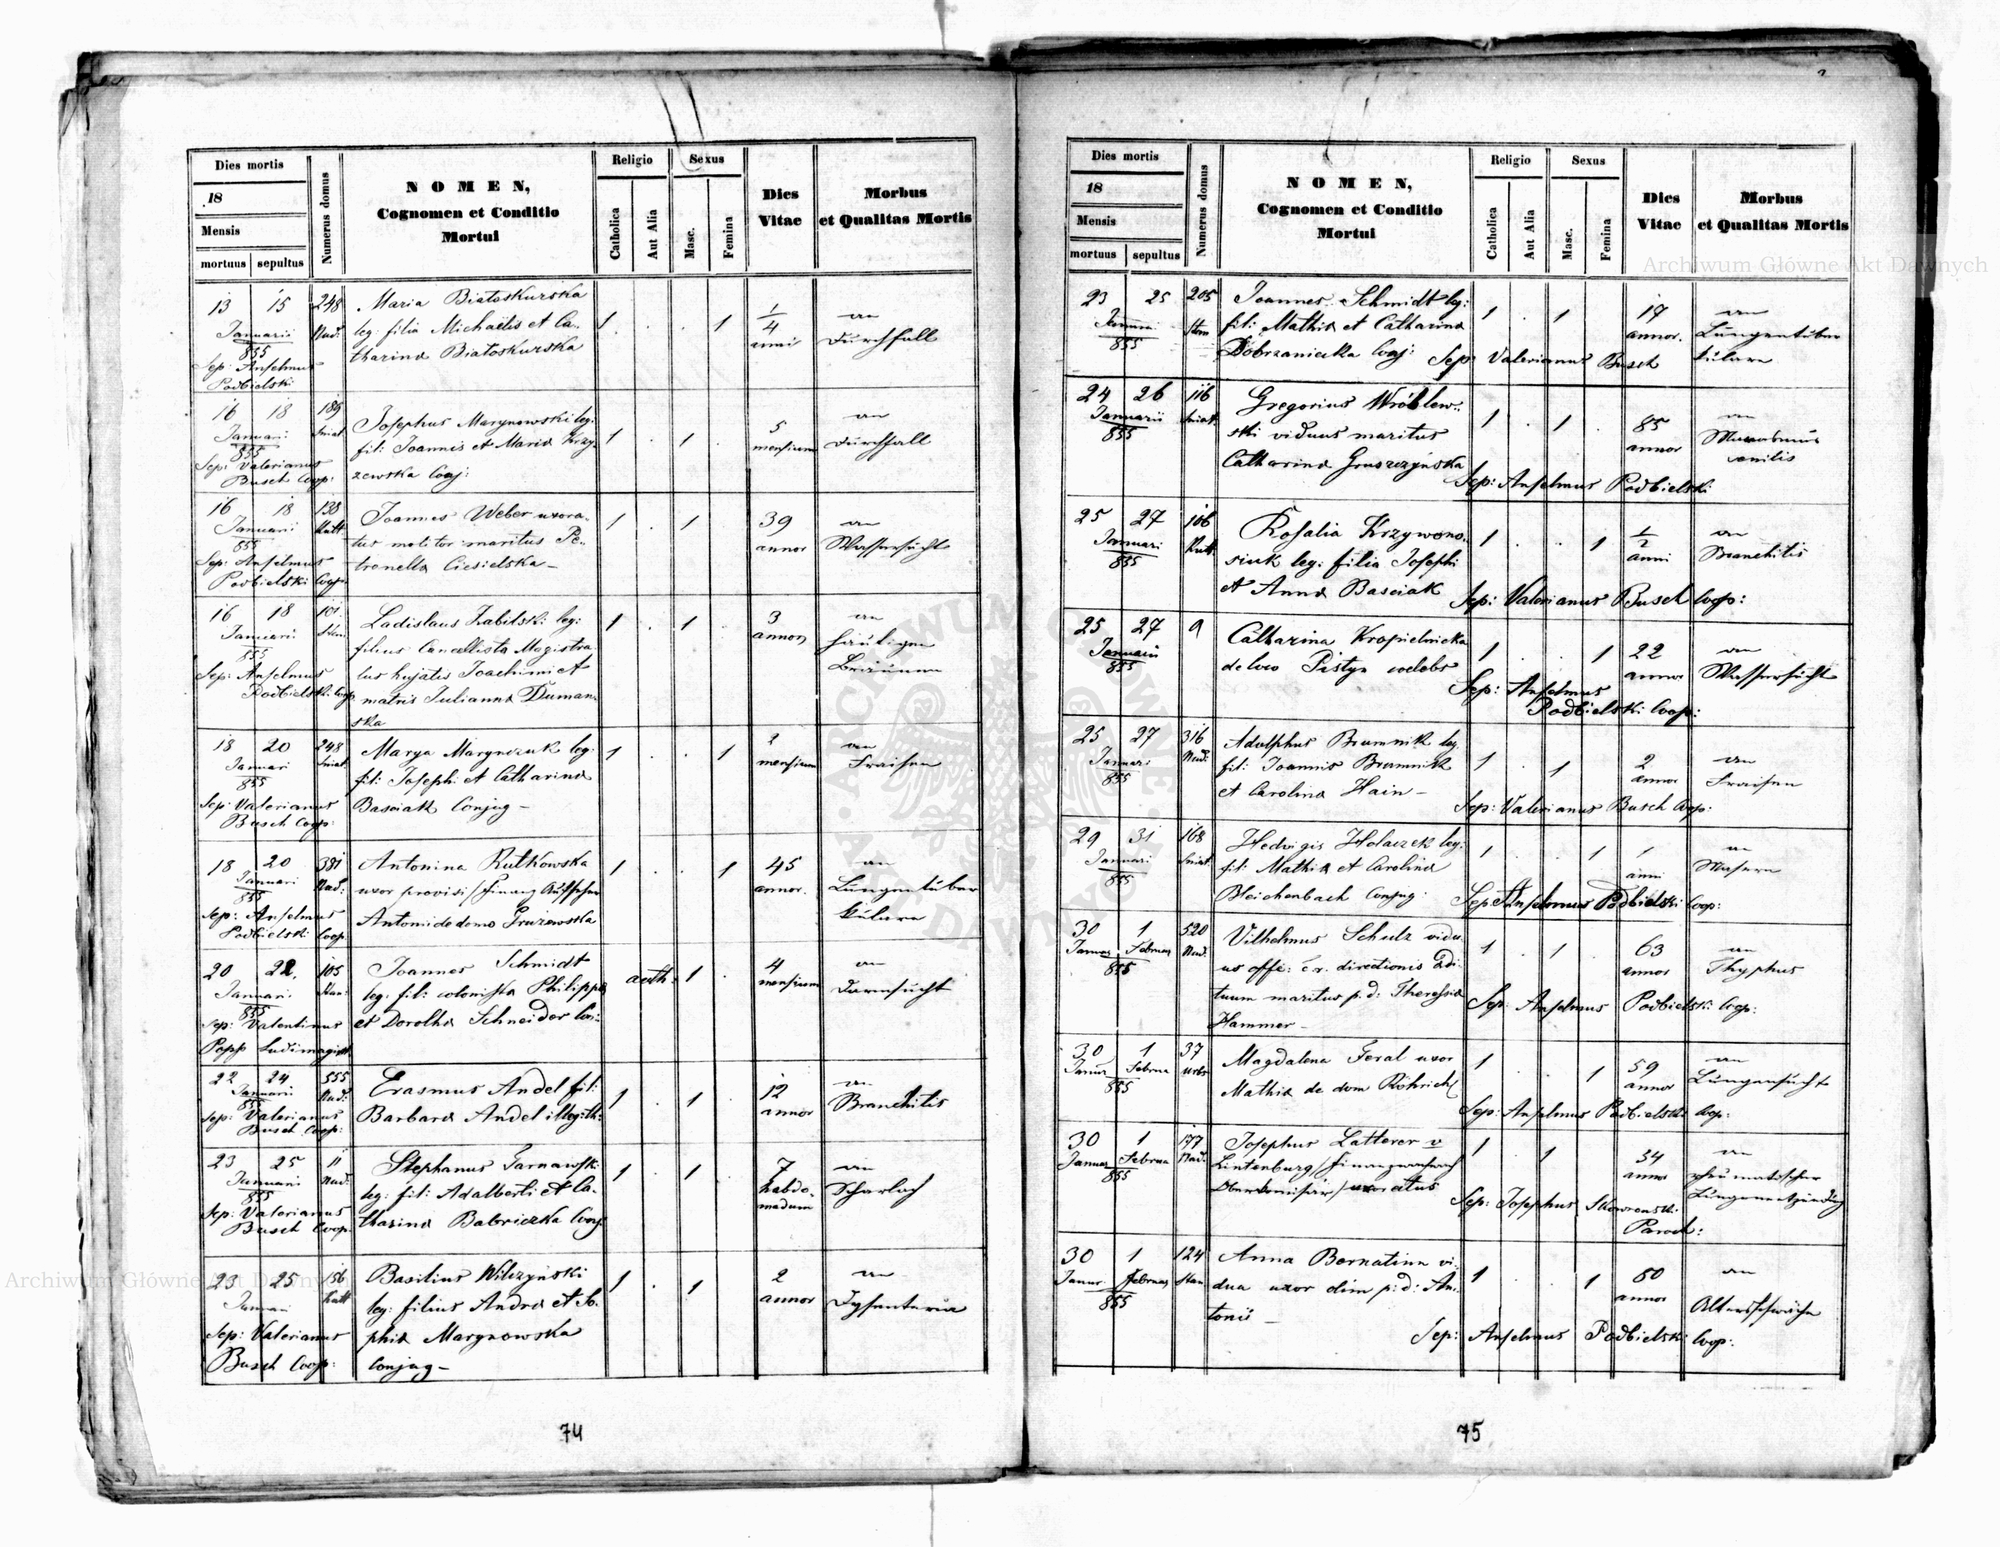 Dies mortis
18
Mensis
mortuus sepultus
Numerus domus
NOMEN,
Cognomen et Conditio
Mortui
Religio
Catholica
Aut Alia
Sexus
Masc.
Femina
Dies
Vitae
Morbus
et Qualitas Mortis
13 15 248
Januarii
855
Sep: Anselmus
Podbielski
Maria Białoskurska
leg: filia Michaëlis et Ca-
tharina Białoskurska
1 . . 1
1/4
anni
an
Durchfall
16 18 189
Januari
855
Sep: Valerianus
Busch Coop:
Josephus Marynowski leg:
fil: Joannis et Maria Krzy-
zewska Conj:
1 . 1 .
5
mensium
an
Durchfall
16 18 138
Januarii
855
Sep: Anselmus
Podbielski Coop.
Joannes Weber uxora-
tus molitor maritus Pe-
tronella Ciesielska -
1 . 1 .
39
annor
an
Wassersucht
16 18 101
Januarii
855
Sep: Anselmus
Podbielski Coop.
Ladislaus Zabilski leg:
filius Cancellista Magistra
tus hujatis Joachimi et
matris Julianna Duman-
ska
1 . 1 .
3
annor
an
häutigen
Bräune
18 20 248
Januari
855
Sep: Valerianus
Busch Coop:
Marya Marynczuk leg:
fil: Joseph: et Catharina
Basciak Conjug -
1 . . 1
2
mensium
an
Fraisen
18 20 381
Januari
855
Sep: Anselmus
Podbielski Coop
Antonina Rutkowska
uxor provisi / Finanz Aufseher
Antoni de domo Gruzewska
1 . . 1
45
annor.
an
Lungentuber
kulare
20 22. 105
Januari
855
Sep: Valentinus
Popp Ludimagist.
Joannes Schmidt
leg: fil: colonista Philippi
et Dorothea Schneider Coi:
1 .
4
mensium
an
Darrsucht
22 24 555
Januarii
855
Sep: Valerianus
Busch Coop:
Erasmus Andel fil:
Barbara Andel illegith:
1 . 1 .
12
annor
an
Branchitis
23 25 11
Januarii
855
Sep: Valerianus
Busch Coop:
Stephanus Tarnawski
leg: fil: Adalberti et Ca-
tharina Babriczka Conj
1 . 1
7
hebdo-
madum
an
Scharlach
23 25 156
Januari
Sep: Valerianus
Busch Coop:
Basilius Wilczyński
leg: filius Andrea et So-
phia Marynowska
Conjug -
1 . 1
2
annor
an
Dysenteria
74
Dies mortis
18
Mensis
mortuus sepultus
Numerus domus
NOMEN,
Cognomen et Conditio
Mortui
Religio
Catholica
Aut Alia
Sexus
Masc.
Femina
Dies
Vitae
Morbus
et Qualitas Mortis
23 25 205
855
Joannes Schmidt leg:
fil: Mathia et Catharina
Dobrzaniecka Conj: Sep: Valerianus Busch
1 . 1
annor.
an
Lungentuber
kulare
24 26 116
Januarii
855
Gregorius Wróblew-
ski viduus maritus
Catharina Gruszczyńska
Sep: Anselmus Podbielski
1 . 1 .
85
annor
an
Marasmus
senilis
25 27 106
Januari
855
Rosalia Krzywono-
siuk leg: filia Josephi
et Anna Basciak Sep: Valerianus Busch Coop:
1 . . 1
1/2
anni
an
Branchitis
25 27 9
Januarii
855
Catharina Kropielnicka
de loco Pistyn coelebs
Sep: Anselmus
Podbielski Coop:
1 . . 1
22
annor
an
Wassersucht
25 27 316
Januari
855
Adolphus Brumnik leg
fil: Joannis Brumnik
et Carolina Hain -
Sep: Valerianus Busch Coop:
1 . 1
2
annor
an
Fraisen
29 31 168
Januari
855
Hedvigis Holaczek leg:
fil: Mathia et Carolina
Bleichenbach Conjug:
Sep: Anselmus Podbielski Coop:
1 . . 1
1
anni
an
Masern
30 1 520
Januar Februar
855
Vilhelmus Schulz vidu-
us offi: c. r. directionis aedi-
tuum maritus p. d: Theresia
Hammer -
Sep: Anselmus Podbielski Coop:
1 . 1 .
63
annor
an
Thyphus
30 1 37
Januar Februa
855
Magdalena Feral uxor
Mathia de dom Röhrich
Sep: Anselmus Podbielski Coop:
1 . . 1
59
annor
an
Lungensucht
30 1 177
Januar Februa
855
Josephus Latterer v
Lintenburg / Finanzwach
Oberkomisär / uxoratus
Sep: Josephus Skowronski
Paroch:
1 . 1
54
annor
an
rheumatischer
Lungenentzündung
30 1 124
Januar Februar
855
Anna Bernatinn vi-
dua uxor olim p: d: An-
tonii -
Sep: Anselmus Podbielski Coop:
1 . . 1
80
annor
an
Altersschwäche
75
Archiwum Główne Akt Dawnych
Archiwum Główne Akt Dawnych
ARCHIWUM GŁÓWNE AKT DAWNYCH